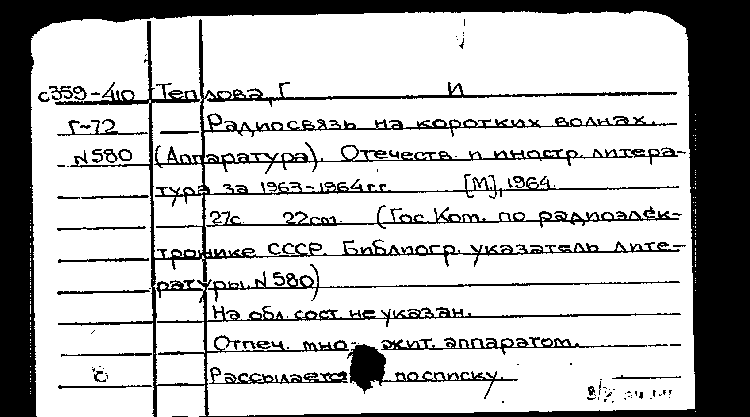 с359-410 Теплова, Г И
Г-72 Радиосвязь на коротких волнах.
N580 (Аппаратура). Отечеств. и иностр. литера-
тура за 1963-1964 г.г. [М], 1964.
27с. 22cm. (Гос. Ком. по радиоэлек-
тронике СССР. Библиогр. указатель лите-
ратуры. N580)
На обл. сост. не указан.
Отпеч. множит. аппаратом.
Рассылается по списку.